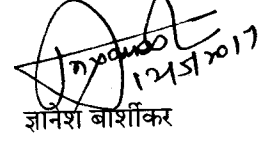 12/5/2017
ज्ञानेश बार्शीकर